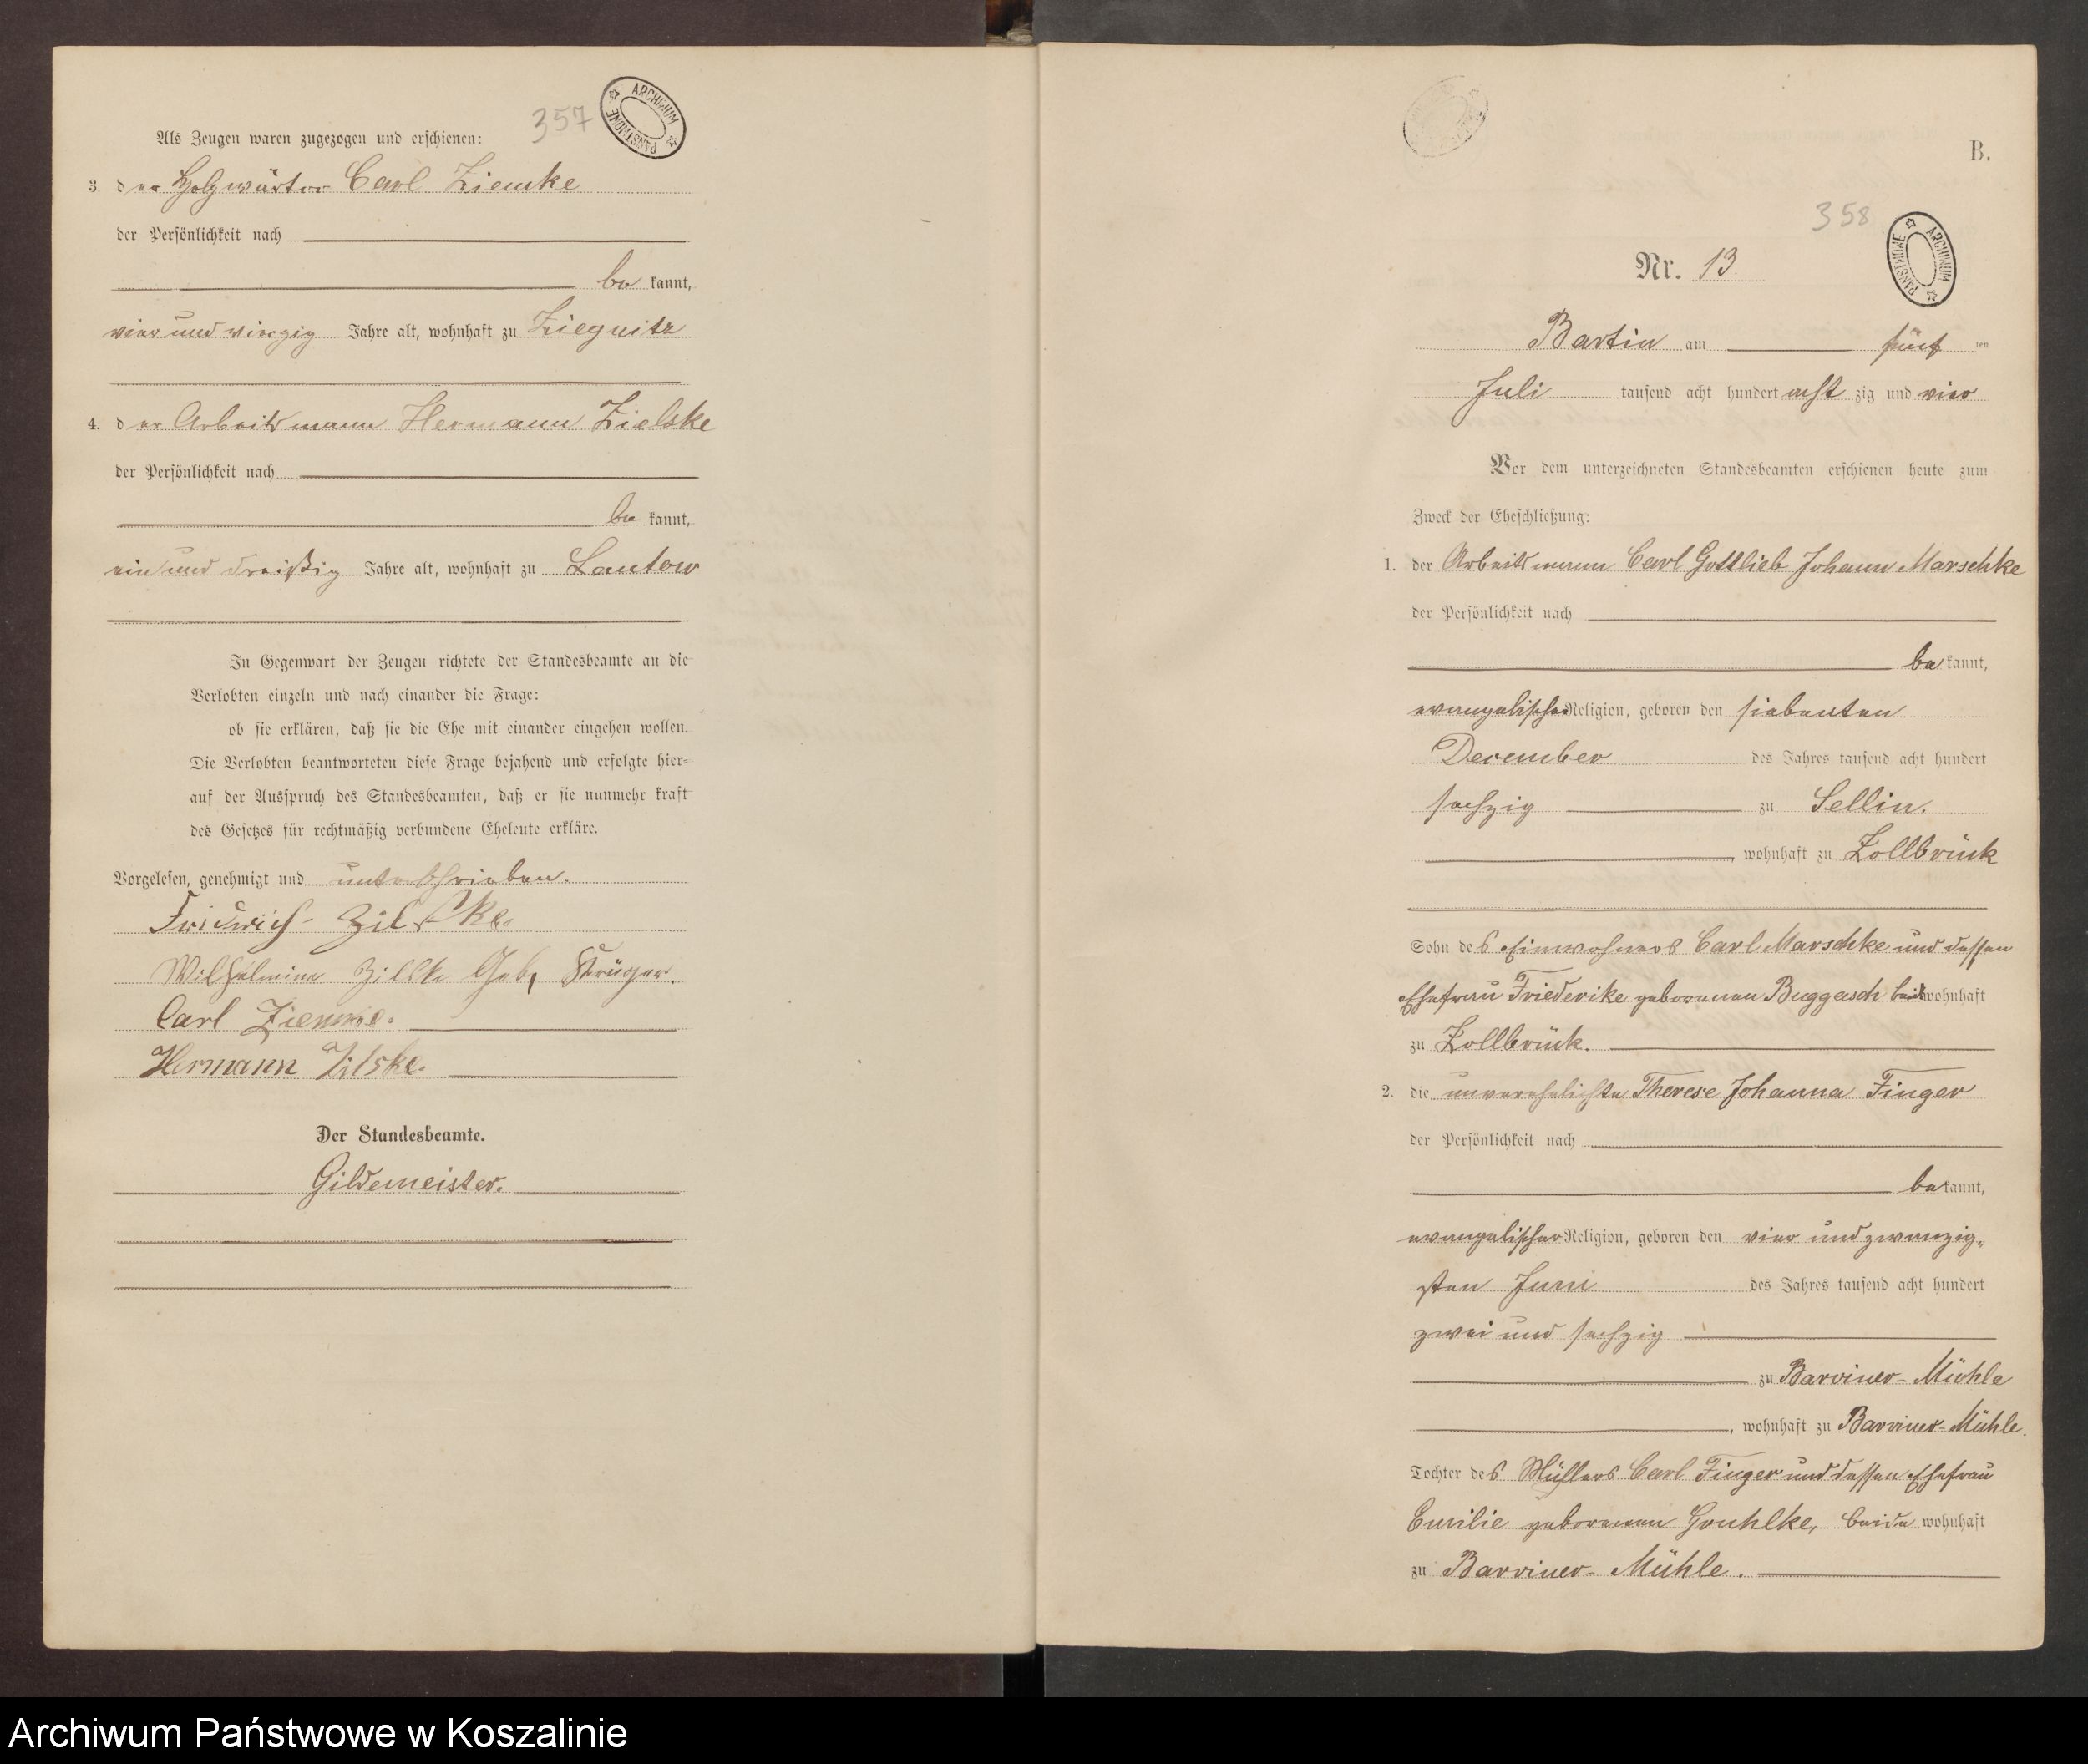 357
ARCHIWUM PAŃSTWOWE
Als Zeugen waren zugezogen und erschienen:
3. der Holzwärter Carl Ziemke
der Persönlichkeit nach
be kannt,
vier und vierzig Jahre alt, wohnhaft zu Ziegnitz
4. der Arbeitsmann Hermann Zielske
der Persönlichkeit nach
be kannt,
ein und dreißig Jahre alt, wohnhaft zu Lantow
In Gegenwart der Zeugen richtete der Standesbeamte an die
Verlobten einzeln und nach einander die Frage:
ob sie erklären, daß sie die Ehe mit einander eingehen wollen.
Die Verlobten beantworteten diese Frage bejahend und erfolgte hier-
auf der Ausspruch des Standesbeamten, daß er sie nunmehr kraft
des Gesetzes für rechtmäßig verbundene Eheleute erkläre.
Vorgelesen, genehmigt und unterschrieben.
Friedrich Zilske.
Wilhelmine Zilske Geb, Krüger.
Carl Ziemke.
Hermann Zilske.
Der Standesbeamte.
Gildemeister.
B.
358
ARCHIWUM PAŃSTWOWE
Nr. 13
Bartin am fünf ten
Juli tausend acht hundert acht zig und vier
Vor dem unterzeichneten Standesbeamten erschienen heute zum
Zweck der Eheschließung:
1. der Arbeitsmann Carl Gottlieb Johann Marschke
der Persönlichkeit nach
be kannt,
evangelischer Religion, geboren den siebenten
December des Jahres tausend acht hundert
sechzig zu Sellin.
, wohnhaft zu Zollbrück
Sohn des Einwohners Carl Marschke und dessen
Ehefrau Friederike geborenen Buggasch beide wohnhaft
zu Zollbrück.
2. die unverehelichte Therese Johanna Finger
der Persönlichkeit nach
be kannt,
evangelischer Religion, geboren den vier und zwanzig-
sten Juni des Jahres tausend acht hundert
zwei und sechzig
zu Barviner-Mühle
, wohnhaft zu Barviner-Mühle.
Tochter des Müllers Carl Finger und dessen Ehefrau
Emilie geborenen Gruhlke, beide wohnhaft
zu Barviner-Mühle.
Archiwum Państwowe w Koszalinie